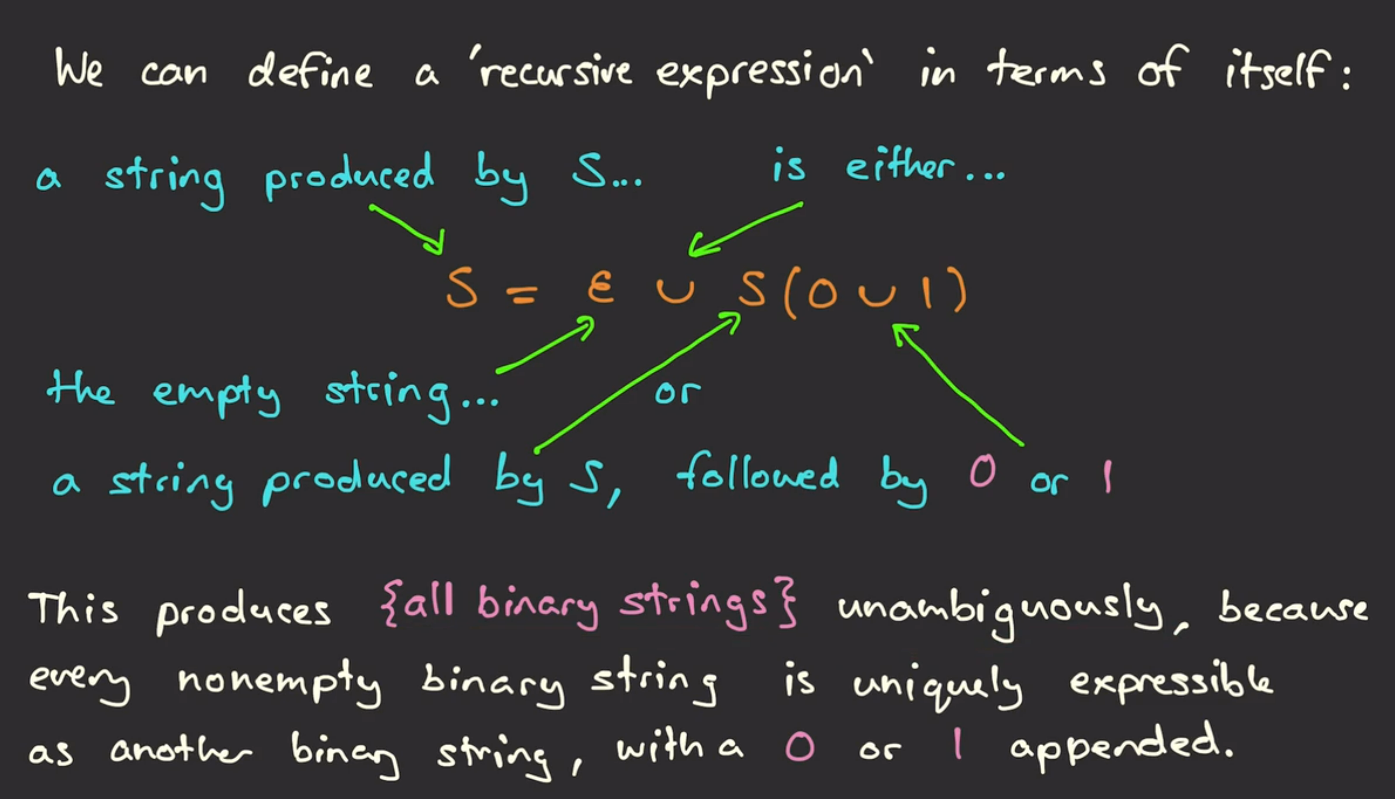 We can define a 'recursive expression' in terms of itself:
a string produced by S... is either...
S = ε ∪ S(0 ∪ 1)
the empty string... or
a string produced by S, followed by 0 or 1
This produces {all binary strings} unambiguously, because
every nonempty binary string is uniquely expressible
as another binary string, with a 0 or 1 appended.